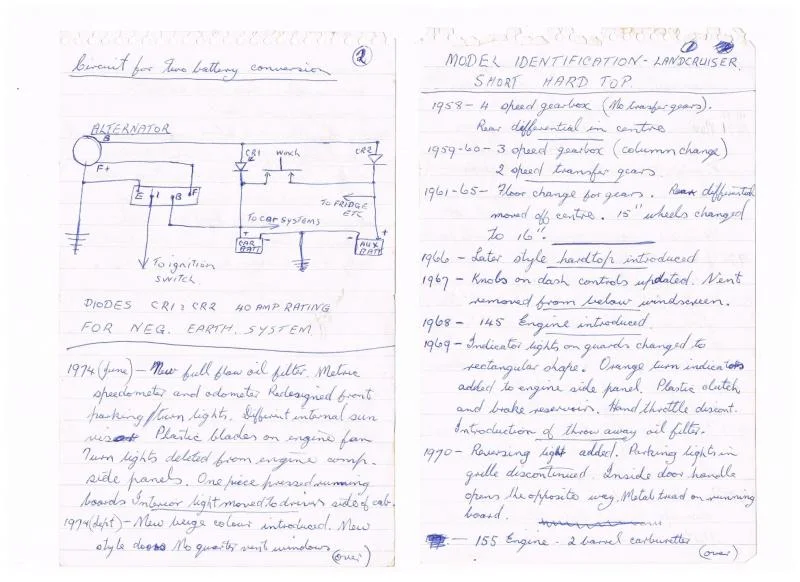 2
Circuit for two battery conversion
ALTERNATOR
B
F+
E I B F
CR1
Winch
CR2
TO FRIDGE
ETC
TO CAR SYSTEMS
+ - - +
CAR
BATT
AUX
BATT
To ignition
SWITCH
DIODES CR1 & CR2 40 AMP RATING
FOR NEG. EARTH. SYSTEM
1974 (June) - New full flow oil filter. Metric
speedometer and odometer Redesigned front
parking/turn lights. Different internal sun
visor Plastic blades on engine fan
Turn lights deleted from engine comp.
side panels. One piece pressed running
boards Interior light moved to drivers side of cab.
1974 (Sept) - New beige colour introduced. New
style doors No quarter vent windows
(over)
1
MODEL IDENTIFICATION - LANDCRUISER.
SHORT HARD TOP.
1958 - 4 speed gearbox (No transfer gears).
Rear differential in centre
1959-60 - 3 speed gearbox (column change)
2 speed transfer gears.
1961-65 - Floor change for gears. Rear differential
moved off centre. 15" wheels changed
to 16".
1966 - Later style hardtop introduced
1967 - Knobs on dash controls updated. Vent
removed from below windscreen.
1968 - 145 Engine introduced.
1969 - Indicator lights on guards changed to
rectangular shape. Orange turn indicators
added to engine side panel. Plastic clutch
and brake reservoirs. Hand throttle discont.
Introduction of throw away oil filter.
1970 - Reversing light added. Parking lights in
grille discontinued. Inside door handle
opens the opposite way. Metal tread on running
board.
- 155 Engine - 2 barrel carburetter
(over)